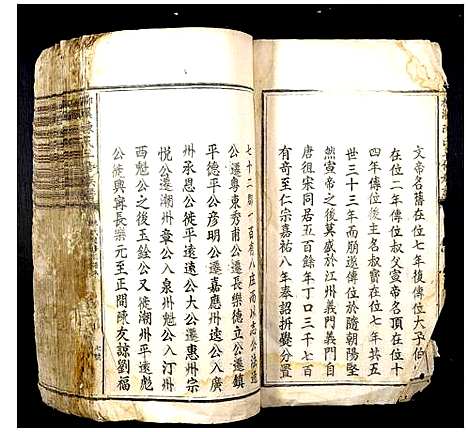 文帝名蒨在位七年後傳位大子伯
在位二年傳位叔父宣帝名頊在位十
四年傳位後主名叔寶在位七年共五
世三十三年而願遂傳位於隨朝陽堅
然宣帝之後莫盛於江州義門義門自
唐祖宋同居五百餘年丁口三千七百
有奇至仁宗嘉祐八年奉詔拆㸑分置
七十二郡一百有八庄而
公遷粵東秀甫公遷長樂德立公遷鎮
平德平公彥明公遷嘉應州平公入廣
州承恩公徙平遠遠公大公遷惠州宗
悅公遷潮州章公入泉州魁公入汀州
西魁公之後玉銓公又徙潮州平遠彪
公徙興寧長樂元至正間陳友諒劉福